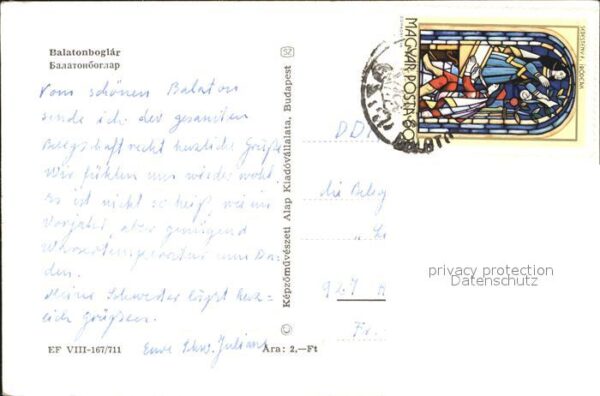 Balatonboglár
Балатонбоглар
Vom schönen Balaton
sende ich der gesamten
Belegschaft recht herzliche Grüße
Wir fühlen uns wieder wohl.
Es ist nicht so heiß, wie im
Vorjahr, aber genügend
Wassertemperatur zum Ba-
den.
Meine Schwester läßt herz-
lich grüßen.
Eure Schw. Juliane
EF VIII-167/711
Ára: 2,-Ft
© Képzőművészeti Alap Kiadóvállalata, Budapest
SZ
MAGYAR POSTA
DDR
die Beleg
927
Fr.
privacy protection
Datenschutz